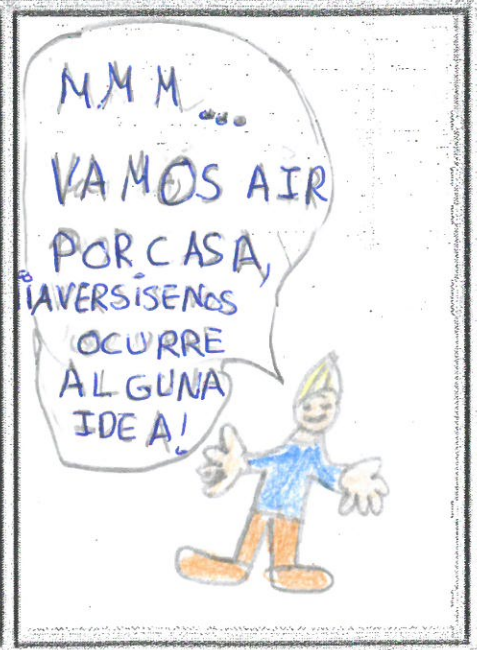 M.M M...
VAMOS AIR
POR CASA,
¡AVERSISENOS
OCURRE
ALGUNA
IDEA!